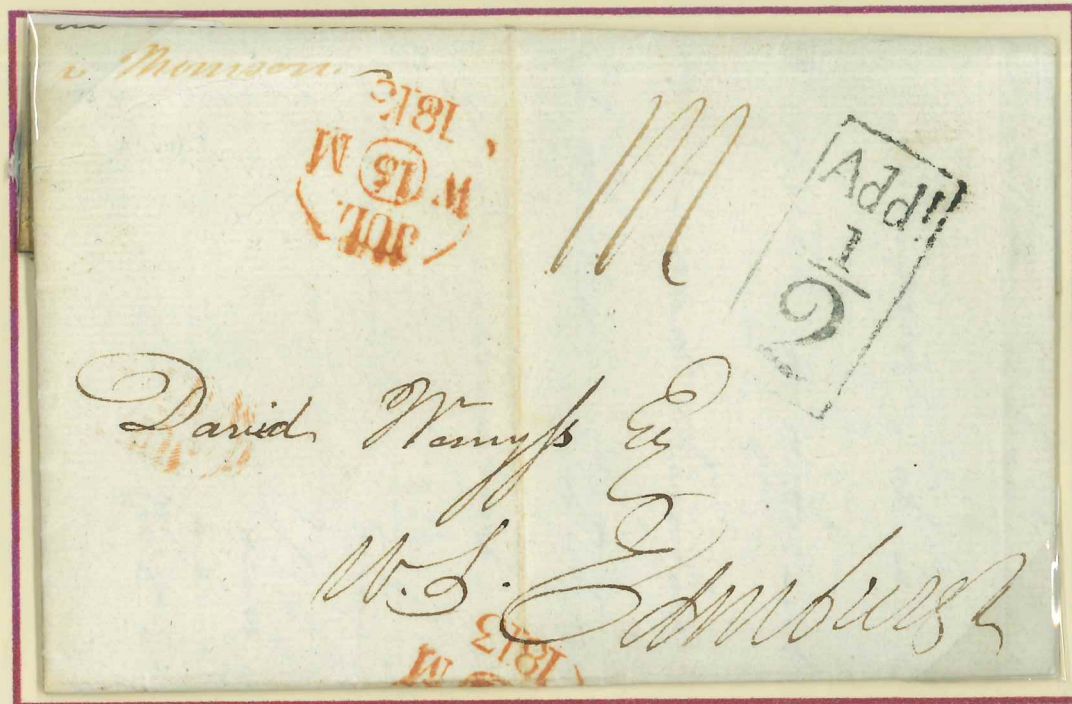 Morrison
1813
W 15 M
JUL
Add!!
1
2
David Wemyss Esq
W.S. Edinburgh
1813
M